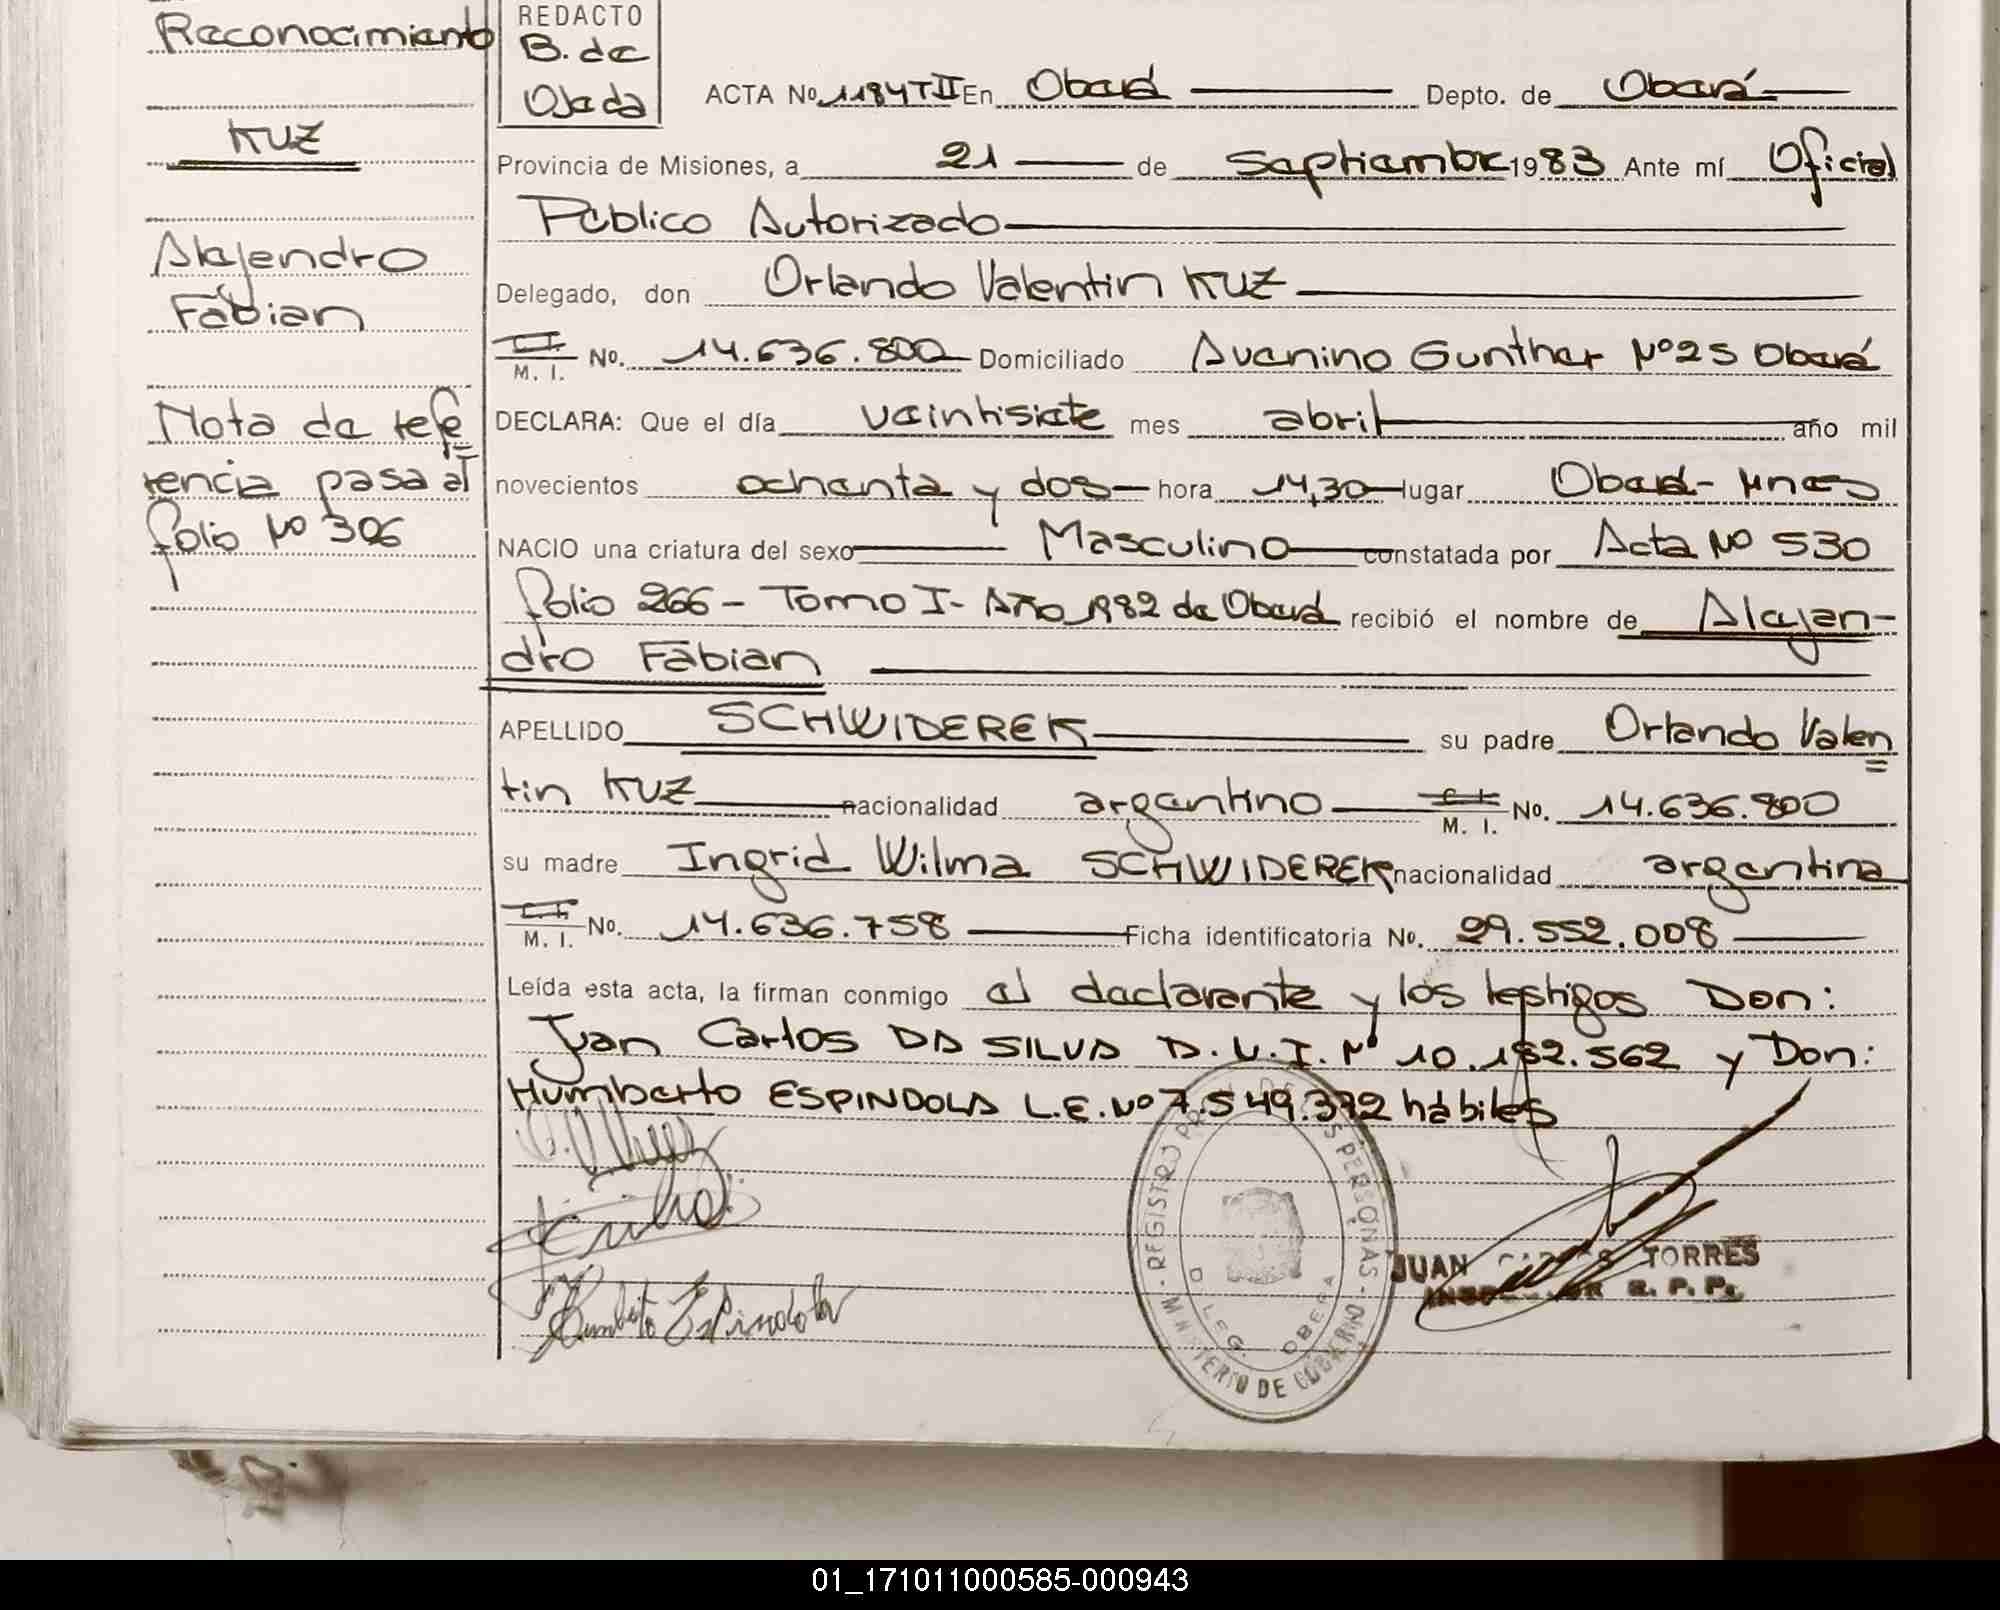 Reconocimiento
KUZ
Alejendro
Fabian
Nota de refe
rencia pasa al
folio Nº 306
REDACTO
B. de
Ojeda
ACTA No. 1184 T II En Oberá Depto. de Oberá
Provincia de Misiones, a 21 de septiembre 1983 Ante mí Oficial
Público Autorizado
Delegado, don Orlando Valentin KUZ
C. I. M. I. No. 14.636.800 Domiciliado Avenino Gunther Nº 25 Oberá
DECLARA: Que el día veintisiete mes abril año mil
novecientos ochenta y dos hora 14,30 lugar Oberá - Mnes
NACIO una criatura del sexo Masculino constatada por Acta Nº 530
folio 266 - Tomo I - Año 1982 de Oberá recibió el nombre de Alejan-
dro Fabian
APELLIDO SCHWIDEREK su padre Orlando Valen
tin KUZ nacionalidad argentino C. I. M. I. No. 14.636.800
su madre Ingrid Wilma SCHWIDEREK nacionalidad argentina
C. I. M. I. No. 14.636.758 Ficha identificatoria No. 29.552.008
Leída esta acta, la firman conmigo el declarante y los testigos Don:
Juan Carlos DA SILVA D.N.I. Nº 10.182.562 y Don:
Humberto ESPINDOLA L.E. Nº 7.549.372 hábiles
Humberto Espindola
REGISTRO PROV. DE LAS PERSONAS - MINISTERIO DE GOBIERNO -
DELEG. OBERA
JUAN CARLOS TORRES
INSPECTOR R. P. P.
01_171011000585-000943